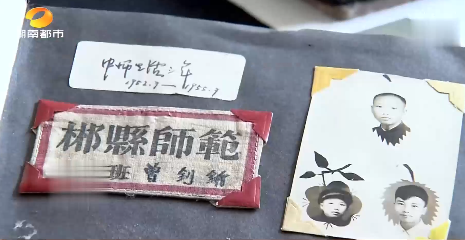 湖南都市
中师生活三年
1952.9 — 1955.9
郴縣師範
班 曾